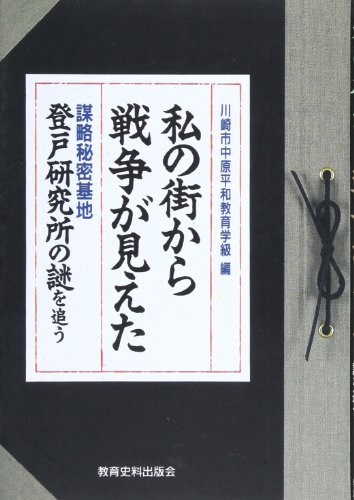 川崎市中原平和教育学級 編
私の街から
戦争が見えた
謀略秘密基地
登戸研究所の謎を追う
教育史料出版会